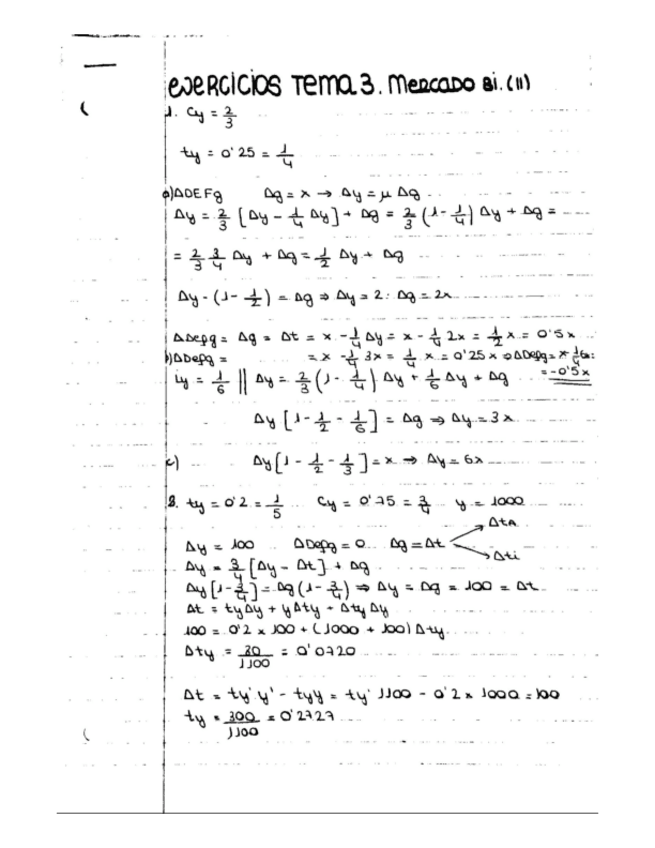 EJERCICIOS TEMA 3. MERCADO Bi. (II)
1. Cy = 2/3
ty = 0'25 = 1/4
a) ΔDEFg Δg = x → Δy = μ Δg
Δy = 2/3 [Δy - 1/4 Δy] + Δg = 2/3 (1 - 1/4) Δy + Δg =
= 2/3 3/4 Δy + Δg = 1/2 Δy + Δg
Δy · (1 - 1/2) = Δg ⇒ Δy = 2 · Δg = 2x
ΔDefg = Δg = Δt = x - 1/4 Δy = x - 1/4 2x = 1/2 x = 0'5x
b) ΔDefg = = x - 1/4 3x = 1/4 x = 0'25x ⇒ ΔDefg = x - 1/4 6x =
= -0'5x
iy = 1/6 || Δy = 2/3 (1 - 1/4) Δy + 1/6 Δy + Δg
Δy [1 - 1/2 - 1/6] = Δg ⇒ Δy = 3x
c) Δy [1 - 1/2 - 1/3] = x ⇒ Δy = 6x
8. ty = 0'2 = 1/5 Cy = 0'75 = 3/4 y = 1000
ΔtA
Δy = 100 ΔDefg = 0 Δg = Δt
Δti
Δy = 3/4 [Δy - Δt] + Δg
Δy [1 - 3/4] = Δg (1 - 3/4) ⇒ Δy = Δg = 100 = Δt
Δt = tyΔy + yΔty + ΔtyΔy
100 = 0'2 x 100 + (1000 + 100) Δty
Δty = 80/1100 = 0'0720
Δt = ty' y' - tyy = ty' 1100 - 0'2 x 1000 = 100
ty = 300/1100 = 0'2727